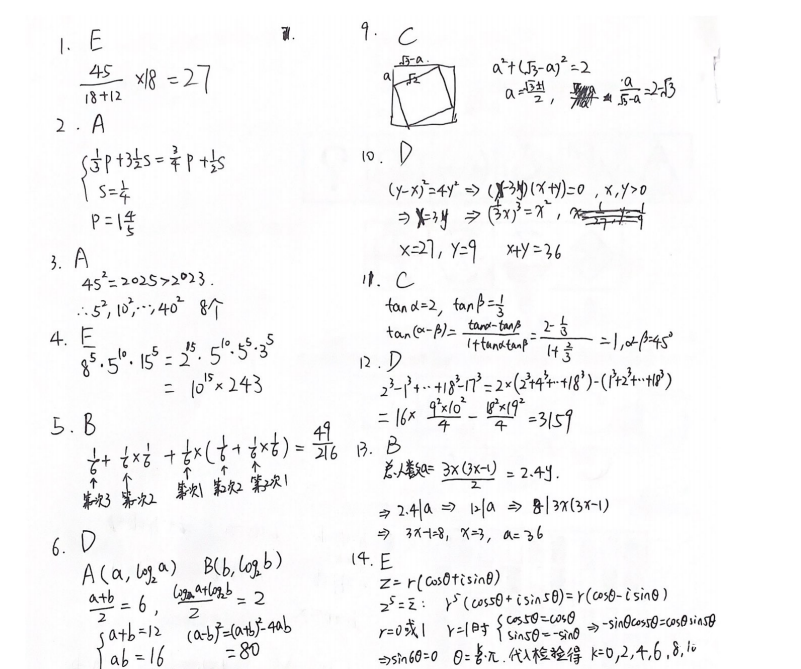 1. E
45/(18+12) ×18 = 27
2. A
{ 1/3 p + 3 1/2 s = 3/4 p + 1/2 s
s = 1/4
p = 1 4/5
3. A
45² = 2025 > 2023.
∴ 5², 10², ⋯, 40² 8个
4. E
8⁵ · 5¹⁰ · 15⁵ = 2¹⁵ · 5¹⁰ · 5⁵ · 3⁵
= 10¹⁵ × 243
5. B
1/6 + 1/6 × 1/6 + 1/6 × (1/6 + 1/6 × 1/6) = 49/216
第一次3 第一次2 第一次1 第二次2 第二次1
6. D
A(a, log₂a) B(b, log₂b)
(a+b)/2 = 6, (log₂a+log₂b)/2 = 2
{ a+b=12 (a-b)²=(a+b)²-4ab
ab=16 =80
9. C
√3-a
a
√2
a²+(√3-a)²=2
a=(√3±1)/2, a/(√3-a)=2-√3
10. D
(y-x)²=4y² ⇒ (x-3y)(x+y)=0, x,y>0
⇒ x=3y ⇒ (1/3 x)³=x²,
x=27, y=9 x+y=36
11. C
tanα=2, tanβ=1/3
tan(α-β)= (tanα-tanβ)/(1+tanαtanβ) = (2-1/3)/(1+2/3) =1, α-β=45°
12. D
2³-1³+⋯+18³-17³=2×(2³+4³+⋯+18³)-(1³+2³+⋯+18³)
=16× (9²×10²)/4 - (18²×19²)/4 =3159
13. B
总人数a= 3x(3x-1)/2 = 2.4y.
⇒ 2.4|a ⇒ 12|a ⇒ 8|3x(3x-1)
⇒ 3x-1=8, x=3, a=36
14. E
z=r(cosθ+isinθ)
z⁵=z̄: r⁵(cos5θ+isin5θ)=r(cosθ-isinθ)
r=0或1 r=1时 { cos5θ=cosθ sin5θ=-sinθ ⇒ -sinθcos5θ=cosθsin5θ
⇒ sin6θ=0 θ=k/6 π. 代入检验得 k=0,2,4,6,8,10